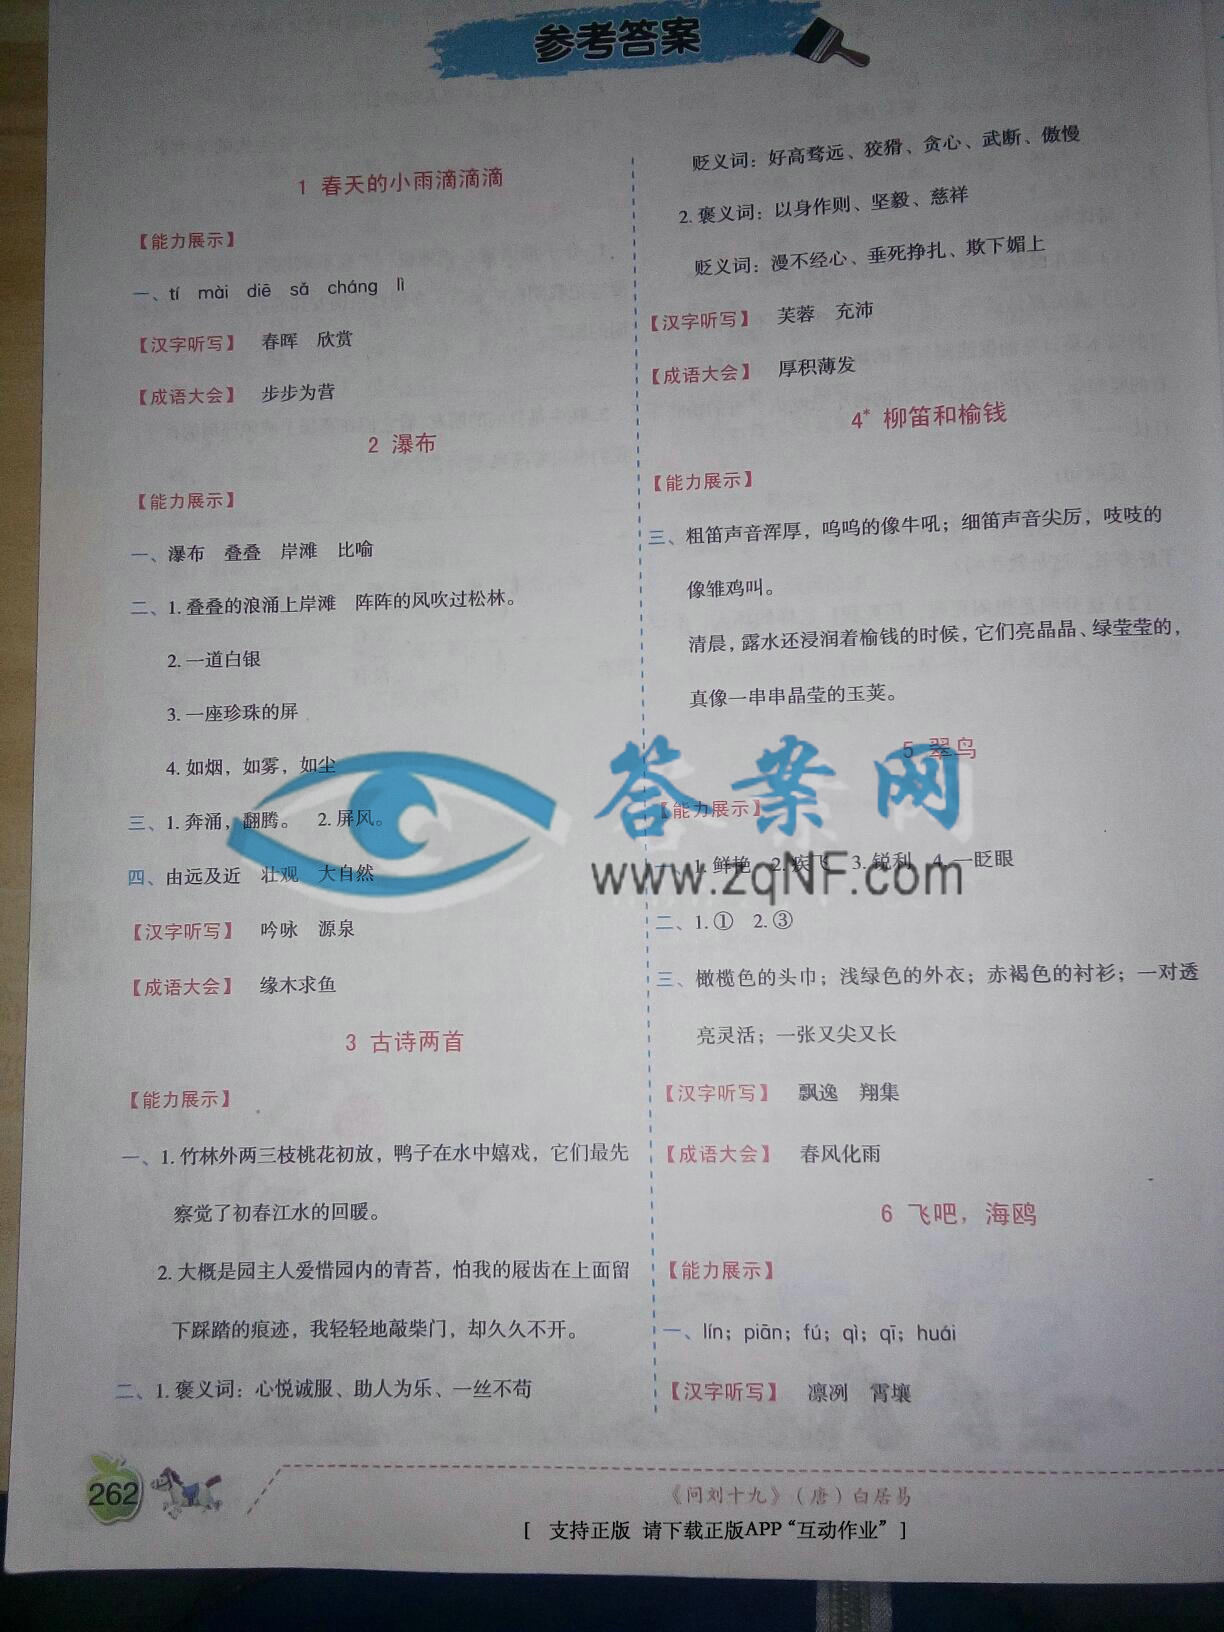 参考答案
1 春天的小雨滴滴滴
【能力展示】
一、tí mài diē sǎ cháng lì
【汉字听写】 春晖 欣赏
【成语大会】 步步为营
2 瀑布
【能力展示】
一、瀑布 叠叠 岸滩 比喻
二、1. 叠叠的浪涌上岸滩 阵阵的风吹过松林。
2. 一道白银
3. 一座珍珠的屏
4. 如烟，如雾，如尘
三、1. 奔涌，翻腾。 2. 屏风。
四、由远及近 壮观 大自然
【汉字听写】 吟咏 源泉
【成语大会】 缘木求鱼
3 古诗两首
【能力展示】
一、1. 竹林外两三枝桃花初放，鸭子在水中嬉戏，它们最先
察觉了初春江水的回暖。
2. 大概是园主人爱惜园内的青苔，怕我的屐齿在上面留
下踩踏的痕迹，我轻轻地敲柴门，却久久不开。
二、1. 褒义词：心悦诚服、助人为乐、一丝不苟
贬义词：好高骛远、狡猾、贪心、武断、傲慢
2. 褒义词：以身作则、坚毅、慈祥
贬义词：漫不经心、垂死挣扎、欺下媚上
【汉字听写】 芙蓉 充沛
【成语大会】 厚积薄发
4* 柳笛和榆钱
【能力展示】
三、粗笛声音浑厚，呜呜的像牛吼；细笛声音尖厉，吱吱的
像雏鸡叫。
清晨，露水还浸润着榆钱的时候，它们亮晶晶、绿莹莹的，
真像一串串晶莹的玉荚。
5 翠鸟
【能力展示】
一、1. 鲜艳 2. 疾飞 3. 锐利 4. 一眨眼
二、1. ① 2. ③
三、橄榄色的头巾；浅绿色的外衣；赤褐色的衬衫；一对透
亮灵活；一张又尖又长
【汉字听写】 飘逸 翔集
【成语大会】 春风化雨
6 飞吧，海鸥
【能力展示】
一、lín；piān；fú；qì；qī；huái
【汉字听写】 凛冽 霄壤
答案网
www.zqNF.com
262
《问刘十九》（唐）白居易
[ 支持正版 请下载正版APP“互动作业” ]